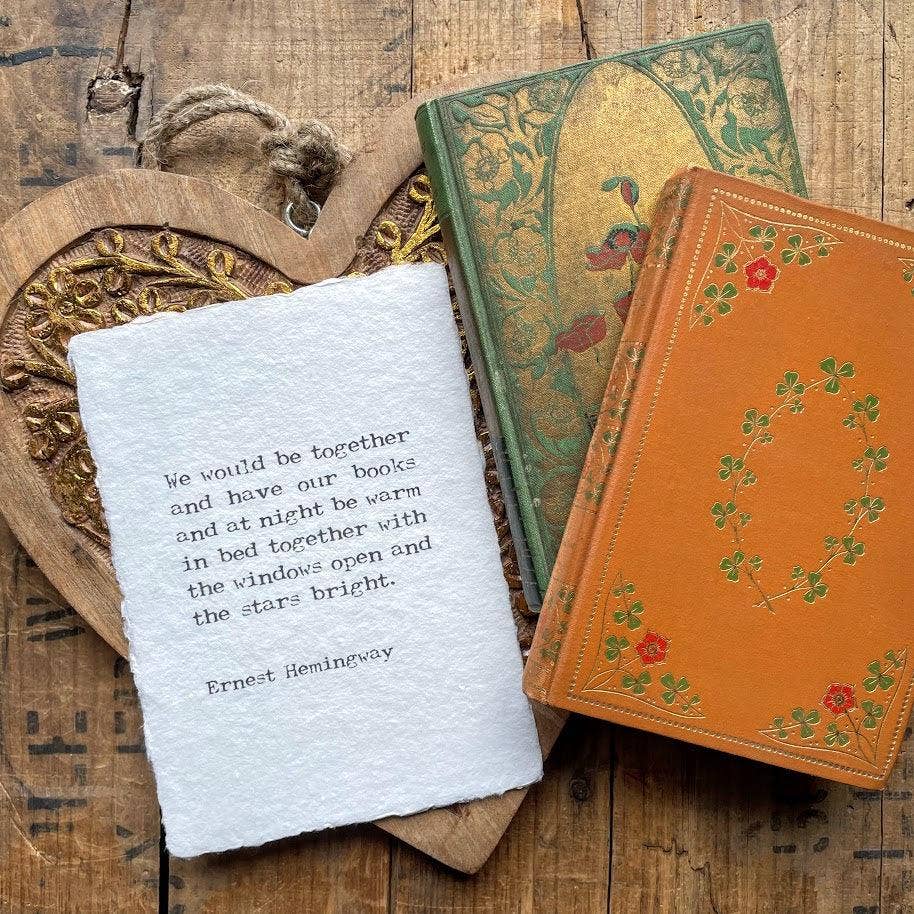 We would be together
and have our books
and at night be warm
in bed together with
the windows open and
the stars bright.
Ernest Hemingway